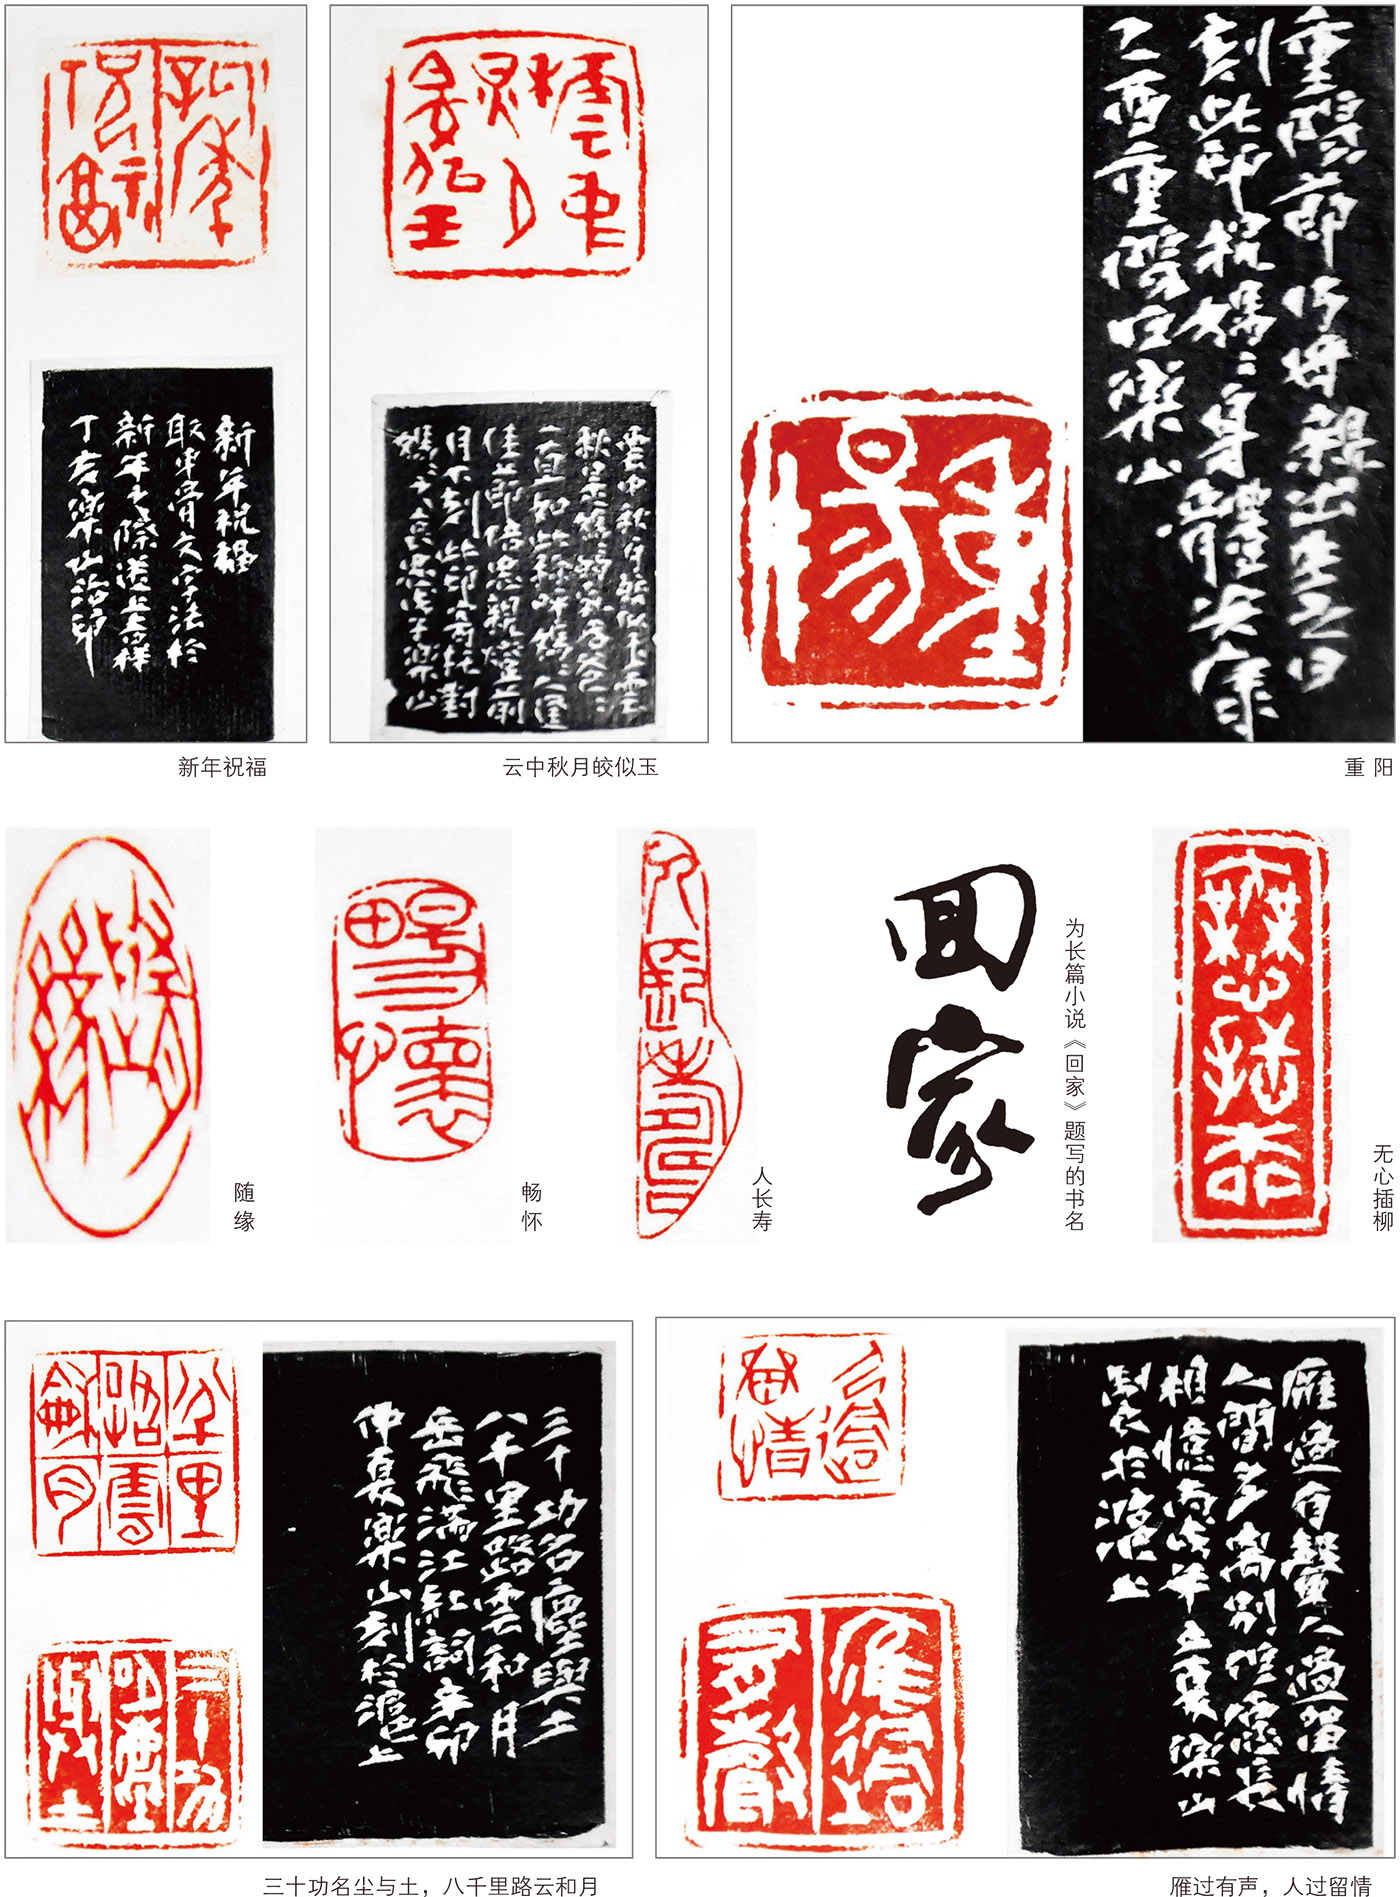 新年祝福
新年祝福
取甲骨文字法於
新年之際送上吉祥
丁亥樂山治印
新年祝福
雲中秋月皎似玉雲
佳節倍思親燈前
月下刻此印寄托對
云中秋月皎似玉
重陽
重陽節乃母親出生之日
刻此印祝媽媽身體安康
乙酉重陽日樂山
重阳
随缘
畅怀
人长寿
回家
为长篇小说《回家》题写的书名
无心插柳
八千里路雲和月
三十功名塵與土
三十功名塵與土
八千里路雲和月
岳飛滿江紅詞辛卯
仲夏樂山刻於滬上
三十功名尘与土，八千里路云和月
人過留情
雁過有聲
雁過有聲人過留情
人間多离别唯愿長
相憶
樂山
於滬上
雁过有声，人过留情